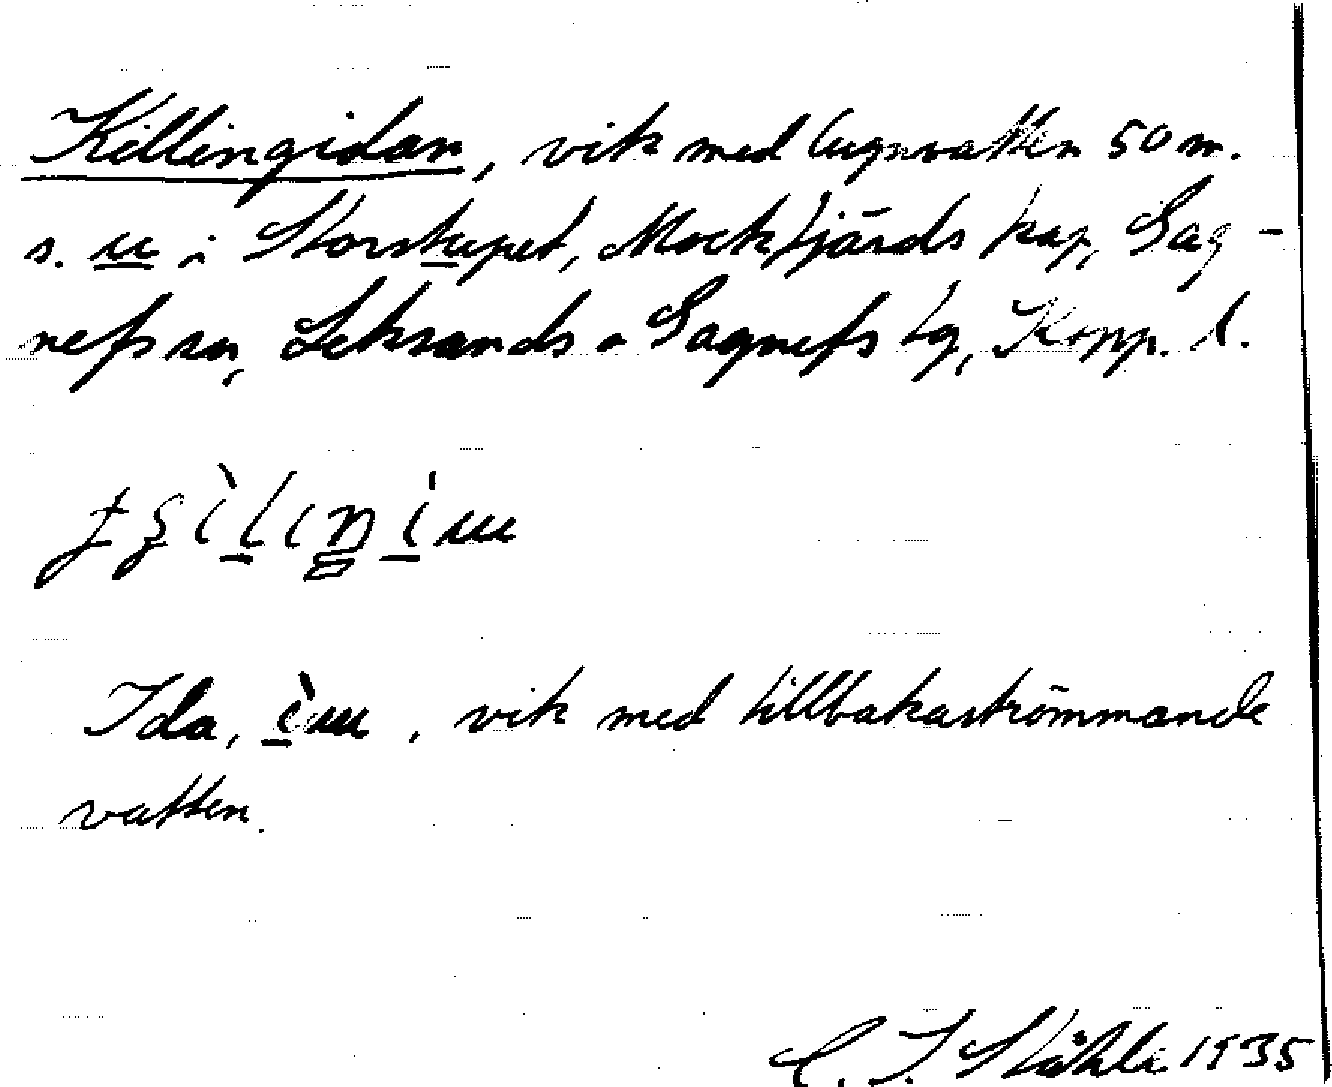 Killingidan, vik med lugnvatten 50 m.
s. u i Storstupet, Mockfjärds kap, Gag-
nefs sn, Leksands o Gagnefs tg, Kopp. l.
Ida, vik med tillbakaströmmande
vatten.
C. I. Ståhle 1935